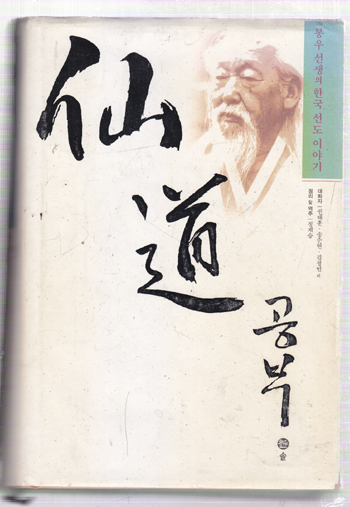 봉우 선생의 한국 선도 이야기
대화자 | 권태훈, 송순현, 김정빈 외
정리 및 역주 | 정재승
仙道
공부
솔